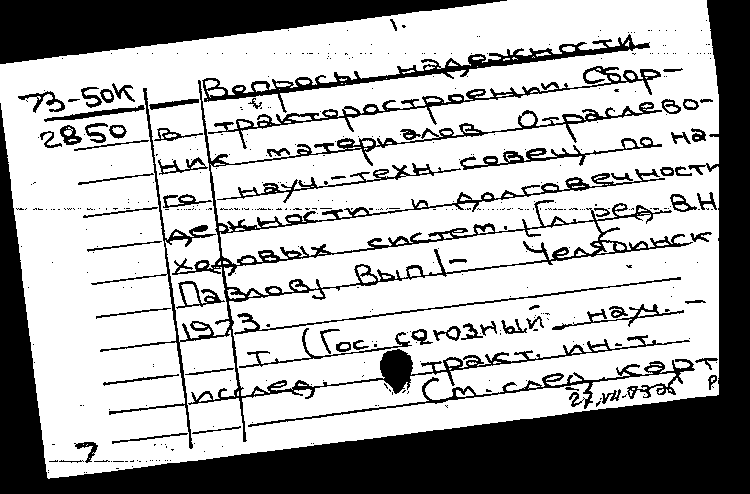 1.
73-50К Вопросы надежности
2850 в тракторостроении. Сбор-
ник материалов Отраслево-
го науч.-техн. совещ. по на-
дежности и долговечности
ходовых систем. [Гл. ред. В.Н.
Павлов]. Вып. 1-    Челябинск
1973.
т. (Гос. союзный науч.-
исслед. тракт. ин-т.
См. след. карт
7